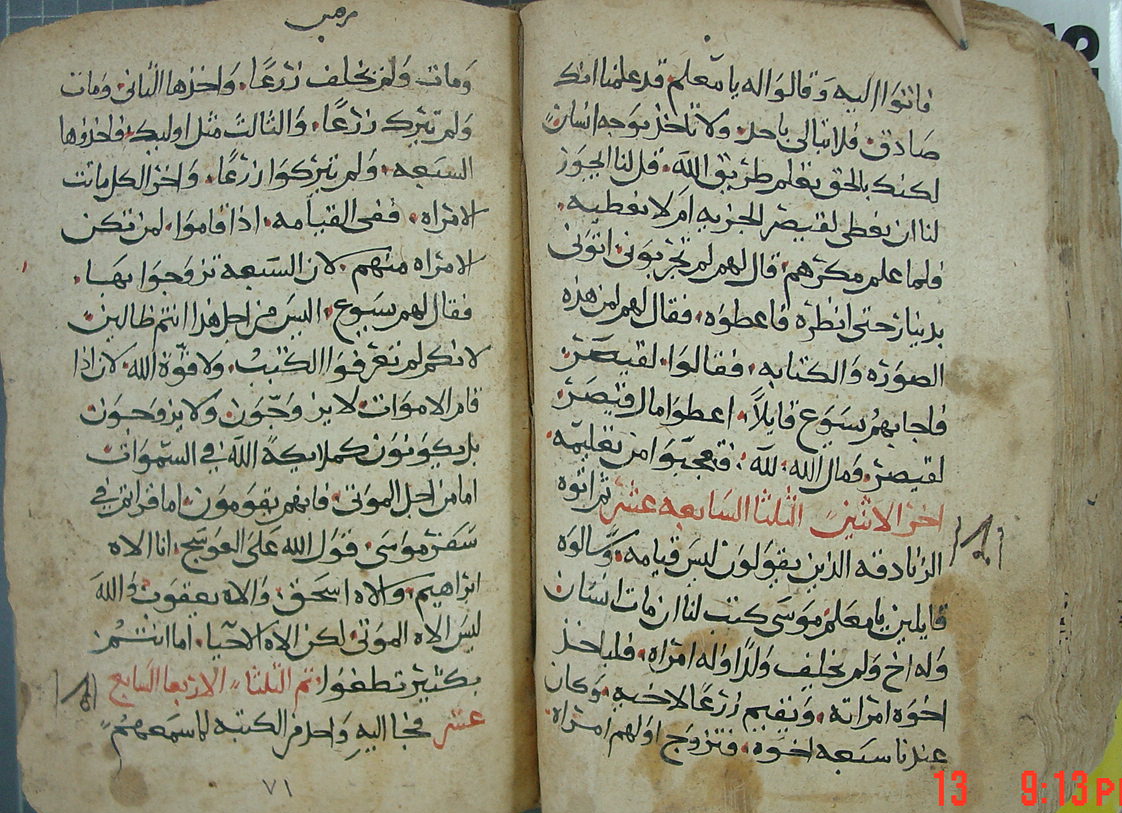 فاتوا اليه وقالوا له يا معلم قد علمنا انك
صادق فلا تبالى باحد ولا تاخذ بوجه انسان
لكنك بالحق تعلم طريق الله قل لنا ايجوز
لنا ان نعطى لقيصر الجزيه ام لا نعطيه
فلما علم مكرهم قال لهم لم تجربونى اتونى
بدينار حتى انظره فاعطوه فقال لهم لمن هذه
الصوره والكتابه فقالوا لقيصر
فاجابهم يسوع قايلاً اعطوا مال قيصر
لقيصر ومال الله لله فتعجبوا من تعليمه
اخر الاثنين الثلثا السابعه عشر ثم اتوه
الزنادقه الذين يقولون ليس قيامه وسالوه
قايلين يا معلم موسى كتب لنا ان مات انسان
وله اخ ولم يخلف ولدًا وله امراه فلياخذ
اخوه امراته ويقيم زرعًا لاخيه وكان
عندنا سبعه اخوه فتزوج اولهم امراه
ومات ولم يخلف زرعًا واخذها الثانى ومات
ولم يترك زرعًا والثالث مثل اوليك فاخذوها
السبعه ولم يتركوا زرعًا واخر الكل ماتت
الامراه ففى القيامه اذا قاموا لمن تكن
الامراه منهم لان السبعه تزوجوا بها
فقال لهم يسوع اليس من اجل هذا انتم ظالين
لانكم لم تعرفوا الكتب ولا قوة الله لان اذا
قام الاموات لا يزوجون ولا يزوجون
بل يكونون كملايكة الله في السموات
اما من اجل الموتى فانهم يقومون اما قراتم في
سفر موسى قول الله على العوسج انا الاه
ابراهيم والاه اسحق والاه يعقوب والله
ليس الاه الموتى لكن الاه الاحيا اما انتم
بكثير تطغوا تم الثلثا الاربعا السابع
عشر فجا اليه واحد من الكتبه لما سمعهم
٧١